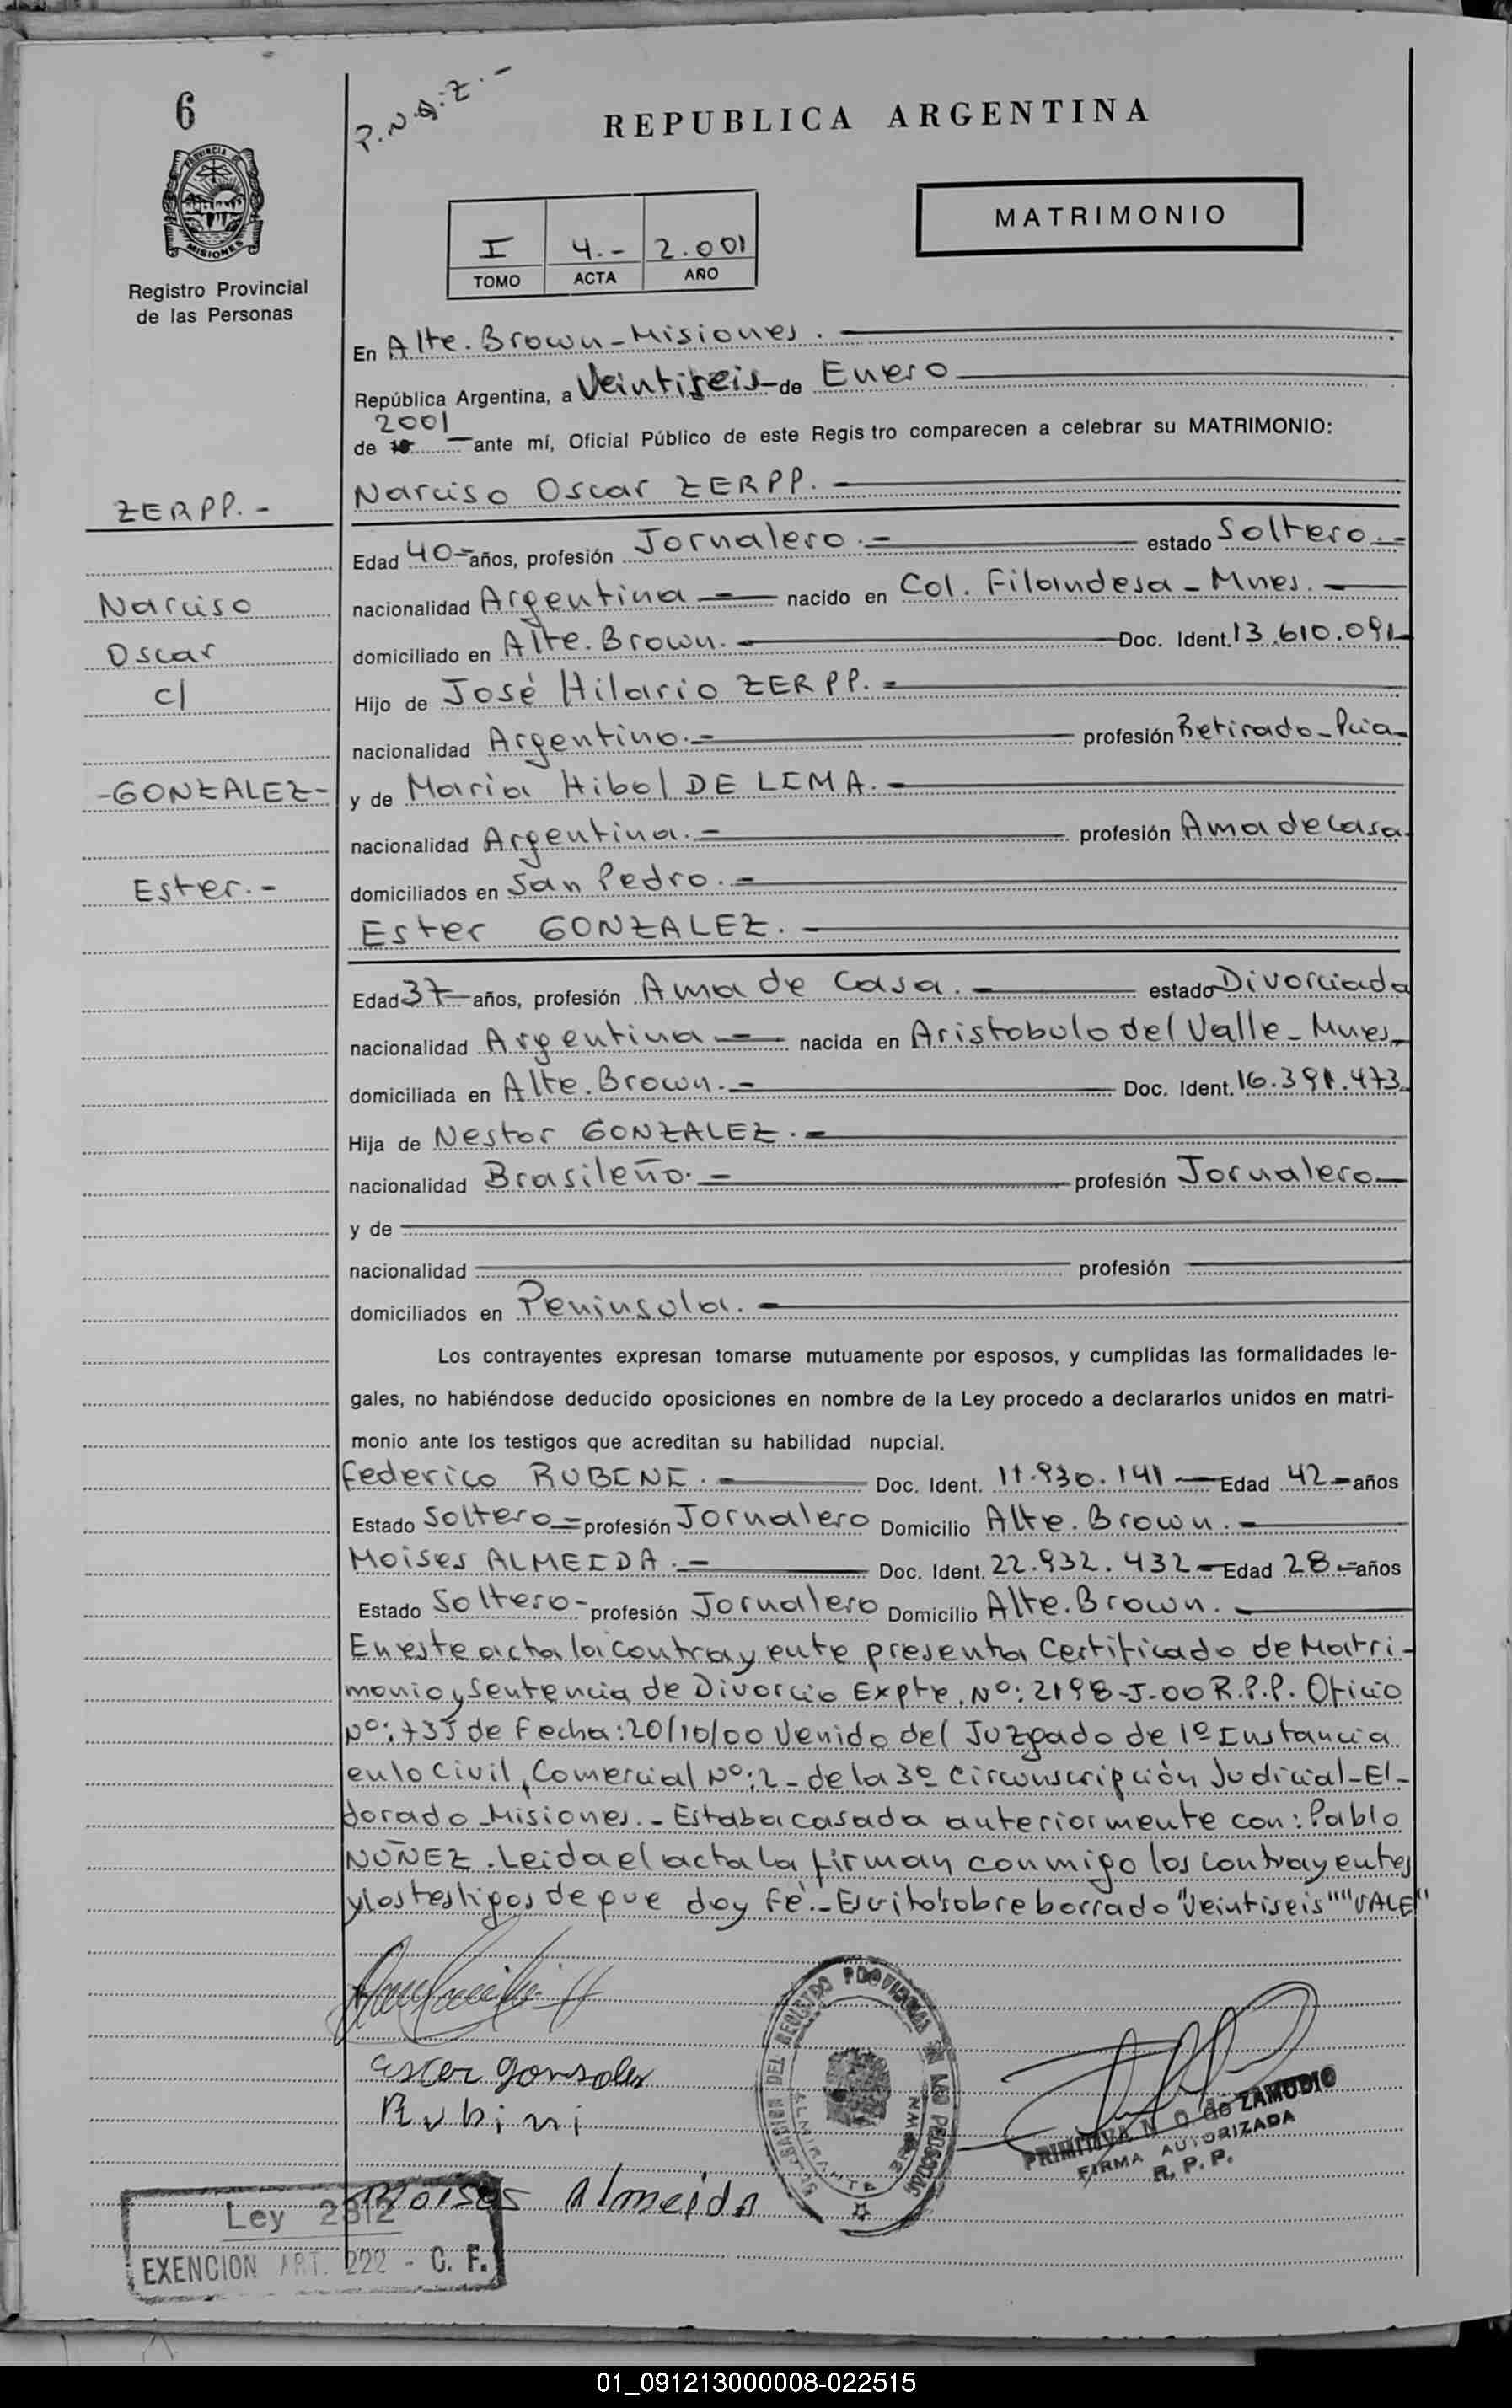 6
P.N.A.Z.-
REPUBLICA ARGENTINA
PROVINCIA DE
MISIONES
MATRIMONIO
I 4.- 2.001
TOMO ACTA AÑO
Registro Provincial
de las Personas
En Alte. Brown - Misiones.
República Argentina, a Veintiseis de Enero
2001
de 19 ante mí, Oficial Público de este Regis tro comparecen a celebrar su MATRIMONIO:
ZERPP.-
Narciso Oscar ZERPP.
Edad 40 años, profesión Jornalero.- estado Soltero.-
Narciso
nacionalidad Argentina nacido en Col. Filandesa - Mnes.
Oscar
domiciliado en Alte. Brown. Doc. Ident. 13.610.091
c/
Hijo de José Hilario ZERPP.
nacionalidad Argentino.- profesión Retirado - Pcia
-GONZALEZ-
y de Maria Hibol DE LIMA.
nacionalidad Argentina.- profesión Ama de Casa
Ester.-
domiciliados en San Pedro.-
Ester GONZALEZ.
Edad 37 años, profesión Ama de Casa. estado Divorciada
nacionalidad Argentina nacida en Aristobulo del Valle - Mnes
domiciliada en Alte. Brown.- Doc. Ident. 16.391.473
Hija de Nestor GONZALEZ.-
nacionalidad Brasileño.- profesión Jornalero
y de
nacionalidad profesión
domiciliados en Peninsola.
Los contrayentes expresan tomarse mutuamente por esposos, y cumplidas las formalidades le-
gales, no habiéndose deducido oposiciones en nombre de la Ley procedo a declararlos unidos en matri-
monio ante los testigos que acreditan su habilidad nupcial.
Federico RUBENE. Doc. Ident. 11.930.141 Edad 42 años
Estado Soltero profesión Jornalero Domicilio Alte. Brown.
Moises ALMEIDA.- Doc. Ident. 22.932.432 Edad 28 años
Estado Soltero- profesión Jornalero Domicilio Alte. Brown.
En este acta la contrayente presenta Certificado de Matri-
monio y Sentencia de Divorcio Expte. Nº: 2198-J-00 R.P.P. Oficio
Nº: 735 de Fecha: 20/10/00 Venido del Juzgado de 1º Instancia
en lo Civil, Comercial Nº: 2 - de la 3º Circunscripción Judicial - El-
dorado Misiones.- Estaba casada anteriormente con: Pablo
NUÑEZ. Leida el acta la firman conmigo los contrayentes
y los testigos de que doy Fé.- Escrito sobre borrado "Veintiseis" "VALE"
Ester gonsalez
Rubini
Moises Almeida
DEL REGISTRO PROVINCIAL DE LAS PERSONAS
ALMIRANTE BROWN
PRIMITIVA N. O. de ZAMUDIO
FIRMA AUTORIZADA
R. P. P.
Ley 2812
EXENCION ART. 222 - C. F.
01_091213000008-022515